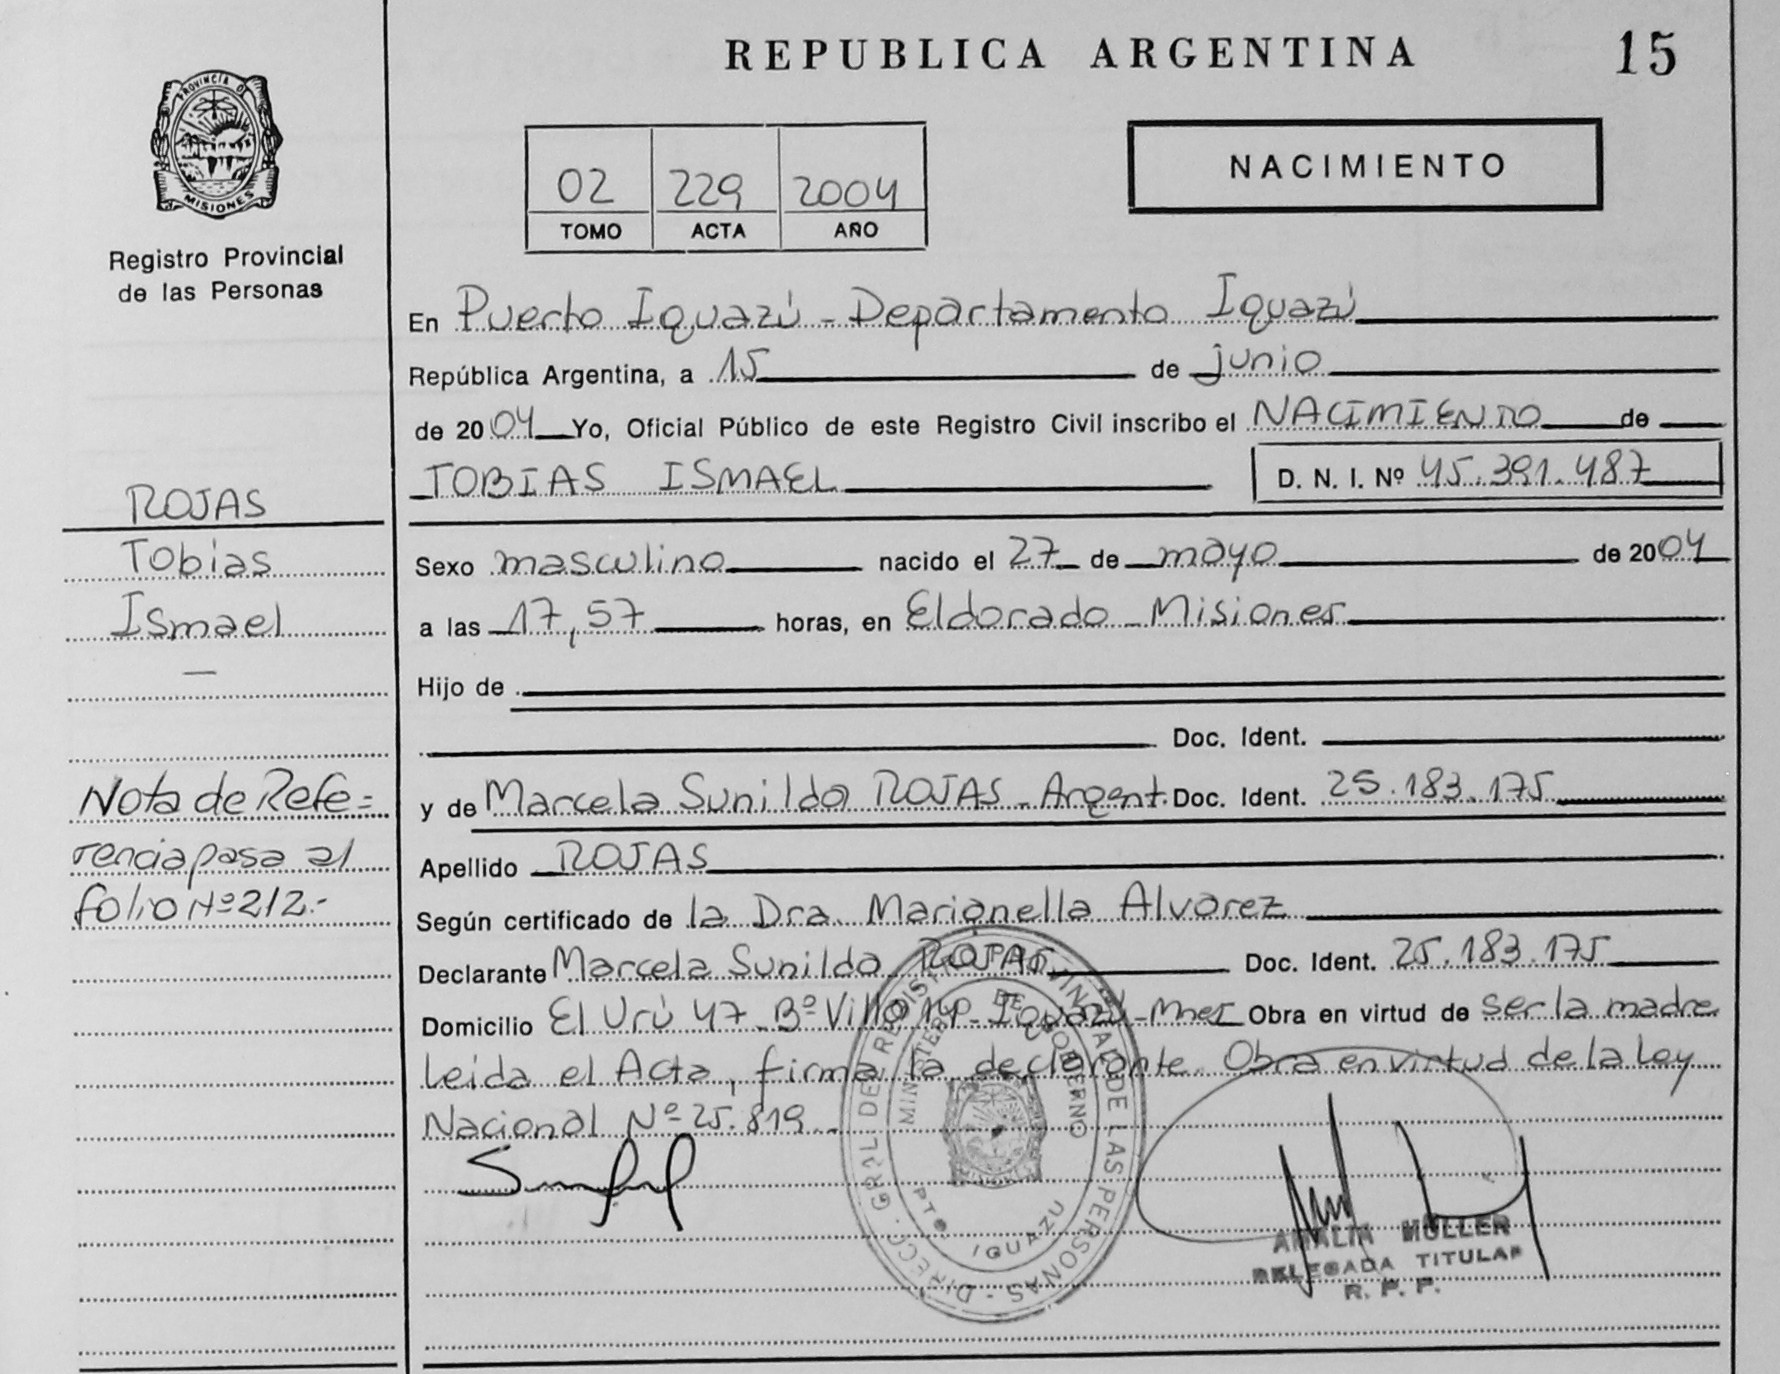 REPUBLICA ARGENTINA 15
PROVINCIA DE
MISIONES
Registro Provincial
de las Personas
02 229 2004
TOMO ACTA AÑO
NACIMIENTO
En Puerto Iguazú - Departamento Iguazú
República Argentina, a 15 de junio
de 2004 Yo, Oficial Público de este Registro Civil inscribo el NACIMIENTO de
TOBIAS ISMAEL D. N. I. Nº 45.391.487
ROJAS
Tobias
Ismael
—
Sexo masculino nacido el 27 de mayo de 2004
a las 17,57 horas, en Eldorado - Misiones
Hijo de
Doc. Ident.
y de Marcela Sunilda ROJAS - Argent. Doc. Ident. 25.183.175
Apellido ROJAS
Nota de Refe=
rencia pasa al
folio Nº 212.-
Según certificado de la Dra. Marianella Alvarez
Declarante Marcela Sunilda ROJAS Doc. Ident. 25.183.175
Domicilio El Urú 47 - Bº Villa 14 - Iguazú - Mnes Obra en virtud de ser la madre
leida el Acta, firma la declarante. Obra en virtud de la Ley
Nacional Nº 25.819.-
DIRECC. GRAL. DEL REGISTRO PROVINCIAL DE LAS PERSONAS -
MINISTERIO DE GOBIERNO
PTO. IGUAZU
AMALIA MULLER
DELEGADA TITULAR
R. P. P.